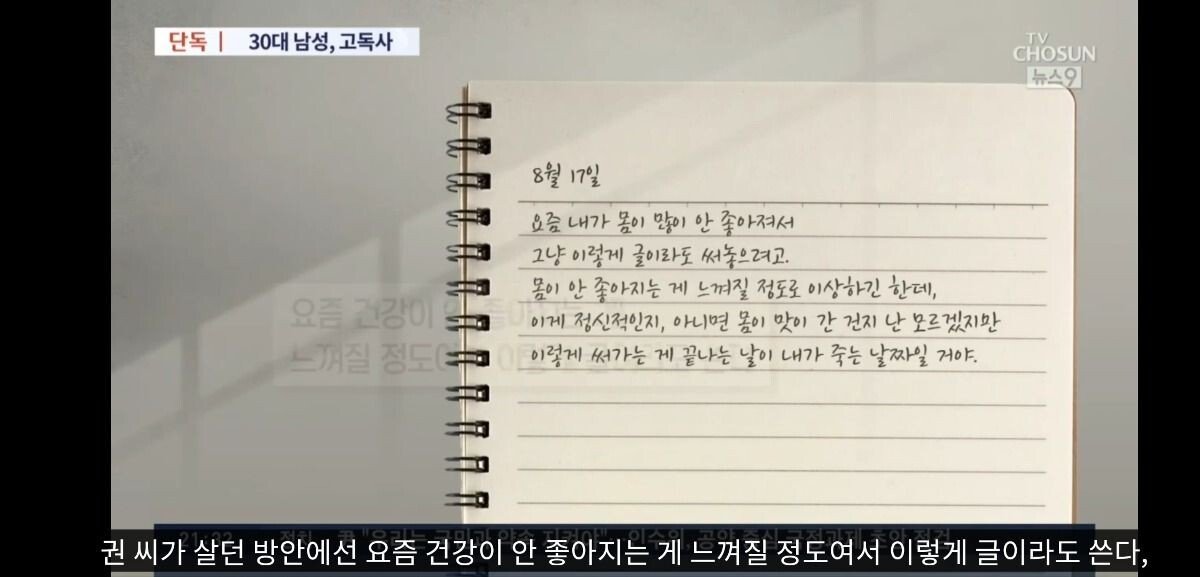 단독 | 30대 남성, 고독사
TV
CHOSUN
뉴스9
8월 17일
요즘 내가 몸이 많이 안 좋아져서
그냥 이렇게 글이라도 써놓으려고.
몸이 안 좋아지는 게 느껴질 정도로 이상하긴 한데,
이게 정신적인지, 아니면 몸이 맛이 간 건지 난 모르겠지만
이렇게 써가는 게 끝나는 날이 내가 죽는 날짜일 거야.
요즘 건강이 안
느껴질 정도여
권 씨가 살던 방안에선 요즘 건강이 안 좋아지는 게 느껴질 정도여서 이렇게 글이라도 쓴다,